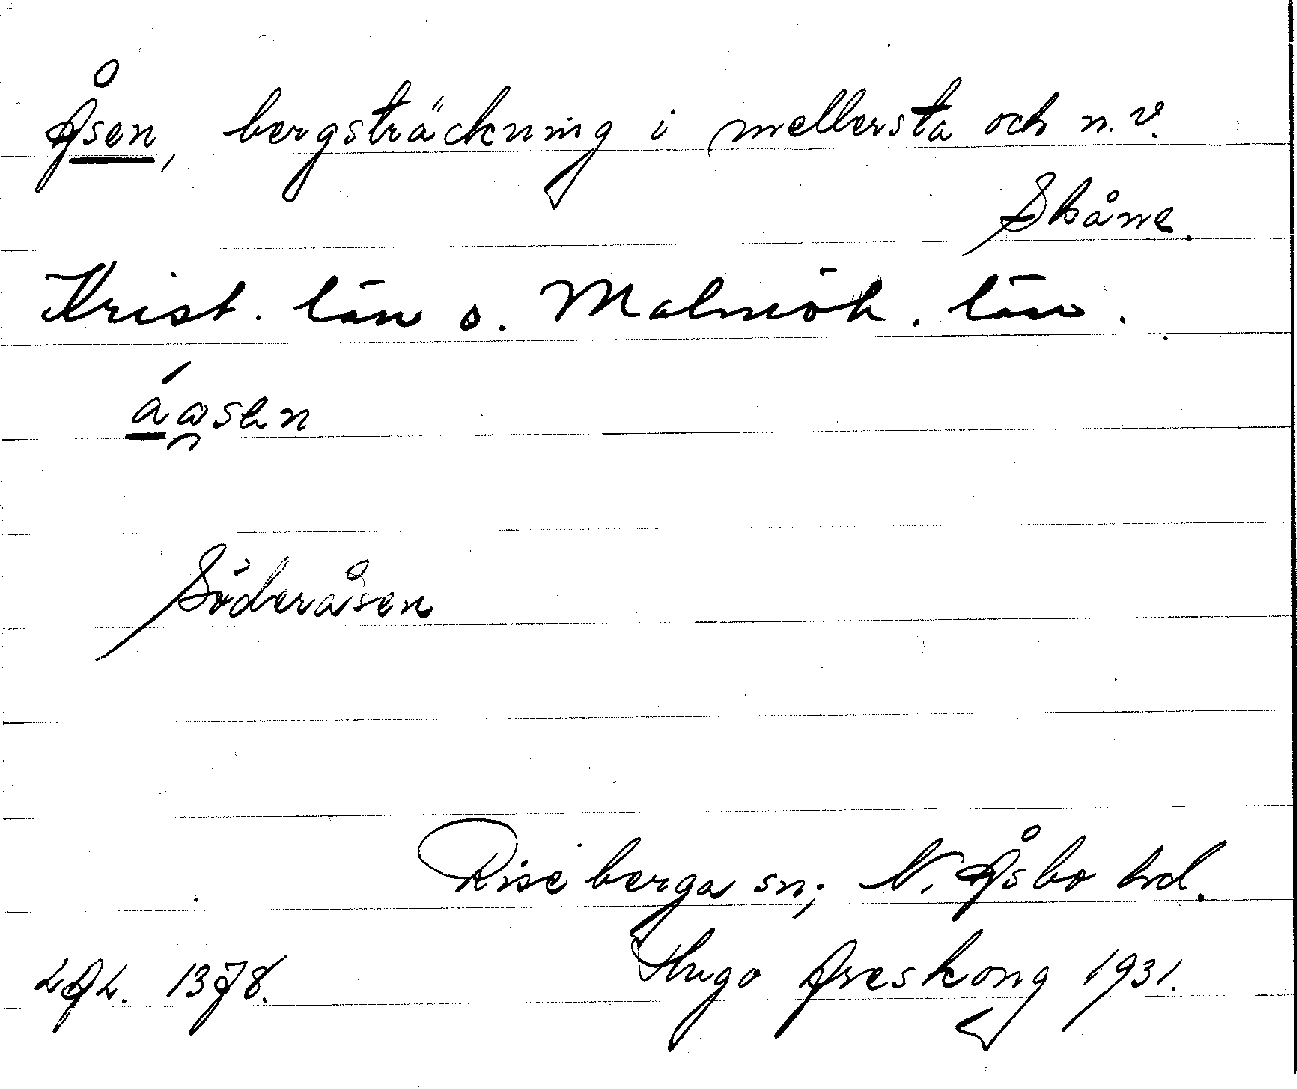 Åsen, bergsträckning i mellersta och n.v.
Skåne.
Krist. län o. Malmöh. län.
áa̯sɛn
Söderåsen
Riseberga sn; N. Åsbo hd.
LAL. 1378. Hugo Areskoug 1931.